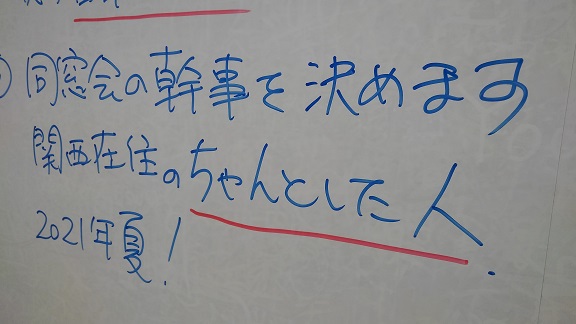 同窓会の幹事を決めます
関西在住のちゃんとした人.
2021年夏!